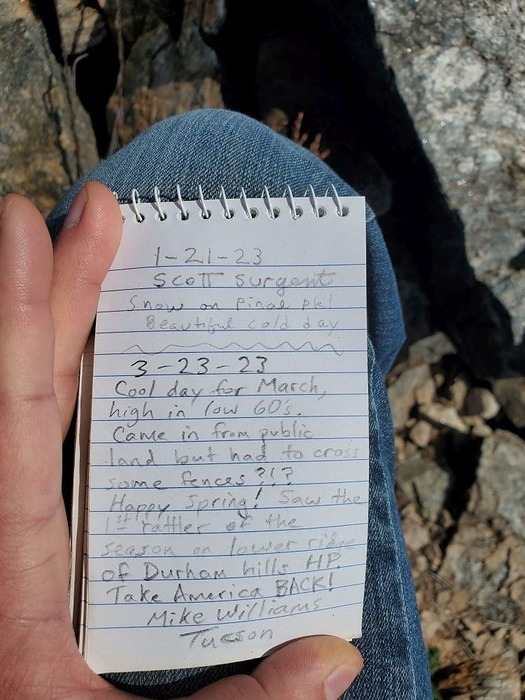 1-21-23
Scott Surgent
Snow on Pinal pk!
Beautiful cold day
3-23-23
Cool day for March,
high in low 60's.
Came in from public
land but had to cross
some fences ?!?
Happy Spring! Saw the
1st rattler of the
season on lower ridge
of Durham hills HP.
Take America BACK!
Mike Williams
Tucson